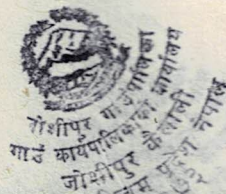 जोशीपुर गाउँपालिका
गाउँ कार्यपालिकाको कार्यालय
जोशीपुर कैलाली
नेपाल